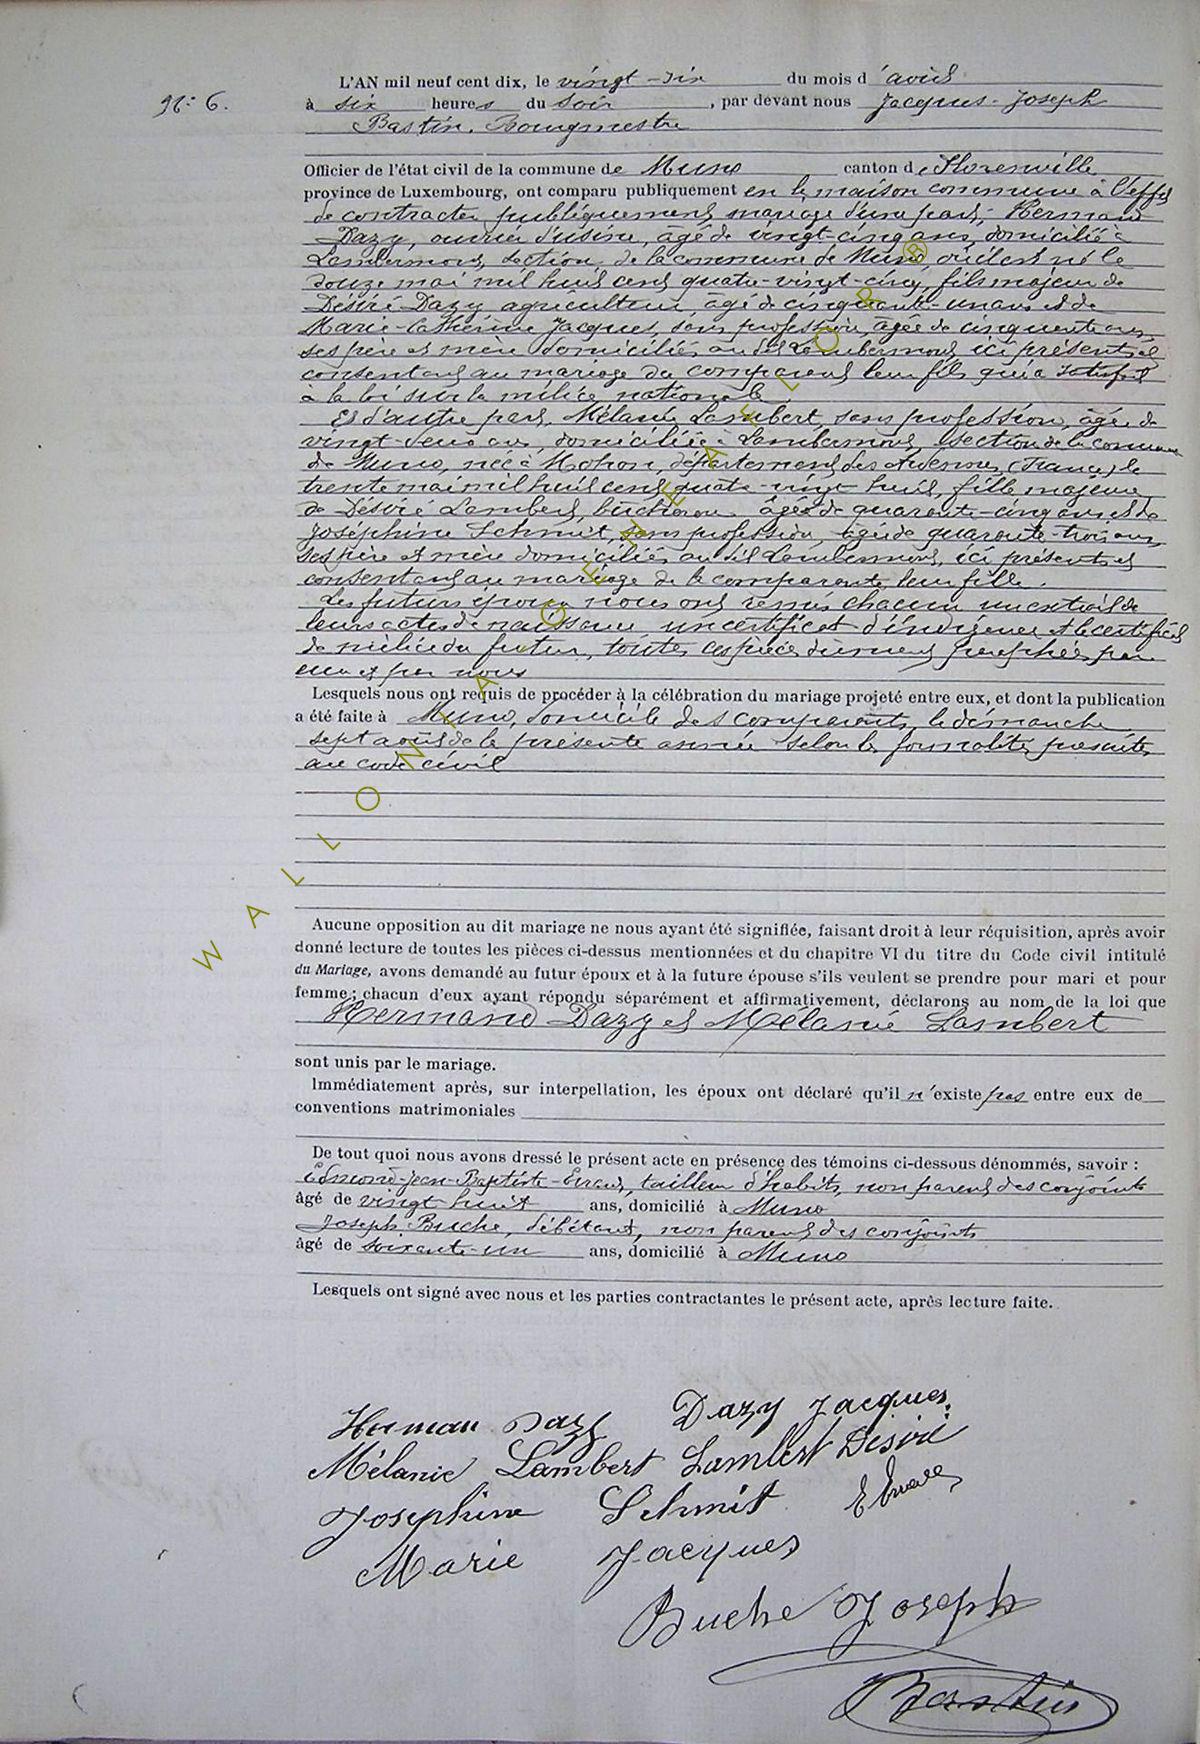 N° 6.
L'AN mil neuf cent dix, le vingt-six du mois d'avril
à six heures du soir, par devant nous Jacques-Joseph
Bastin, Bourgmestre
Officier de l'état civil de la commune de Muno canton de Florenville
province de Luxembourg, ont comparu publiquement en la maison commune à l'effet
de contracter publiquement mariage d'une part, Hermand
Dazy, ouvrier d'usine, âgé de vingt-cinq ans, domicilié à
Lambermont, section de la commune de Muno où il est né le
douze mai mil huit cent quatre-vingt-cinq, fils majeur de
Désiré Dazy agriculteur, âgé de cinquante-un ans et de
Marie-Cathérine Jacques, sans profession, âgée de cinquante ans,
ses père et mère domiciliés au dit Lambermont, ici présents et
consentant au mariage du comparant leur fils qui a satisfait
à la loi sur la milice nationale.
Et d'autre part, Mélanie Lambert, sans profession, âgée de
vingt-deux ans, domiciliée à Lambermont, section de la commune
de Muno, née à Mohon, département des Ardennes, (France) le
trente mai mil huit cent quatre-vingt-huit, fille majeure
de Désiré Lambert, bûcheron âgé de quarante-cinq ans et de
Joséphine Schmit, sans profession, âgée de quarante-trois ans,
ses père et mère domiciliés au dit Lambermont, ici présents et
consentant au mariage de la comparante, leur fille.
Les futurs époux nous ont remis chacun un extrait de
leurs actes de naissance un certificat d'indigence et le certificat
de milice du futur, toutes ces pièces dûment paraphées par
eux et par nous
Lesquels nous ont requis de procéder à la célébration du mariage projeté entre eux, et dont la publication
a été faite à Muno, domicile des comparants, le dimanche
sept août de la présente année selon les formalités prescrites
au code civil
Aucune opposition au dit mariage ne nous ayant été signifiée, faisant droit à leur réquisition, après avoir
donné lecture de toutes les pièces ci-dessus mentionnées et du chapitre VI du titre du Code civil intitulé
du Mariage, avons demandé au futur époux et à la future épouse s'ils veulent se prendre pour mari et pour
femme; chacun d'eux ayant répondu séparément et affirmativement, déclarons au nom de la loi que
Hermand Dazy et Mélanie Lambert
sont unis par le mariage.
Immédiatement après, sur interpellation, les époux ont déclaré qu'il n'existe pas entre eux de
conventions matrimoniales
De tout quoi nous avons dressé le présent acte en présence des témoins ci-dessous dénommés, savoir :
Edmond-Jean-Baptiste tailleur d'habits, non parent des conjoints
âgé de vingt huit ans, domicilié à Muno
Joseph Buche, débitant, non parent des conjoints
âgé de soixante-un ans, domicilié à Muno
Lesquels ont signé avec nous et les parties contractantes le présent acte, après lecture faite.
Herman Dazy Dazy Jacques
Mélanie Lambert Lambert Désiré
Joséphine Schmit E
Marie Jacques
Buche Joseph
Bastin
WALLONIA GENEAFLOR®